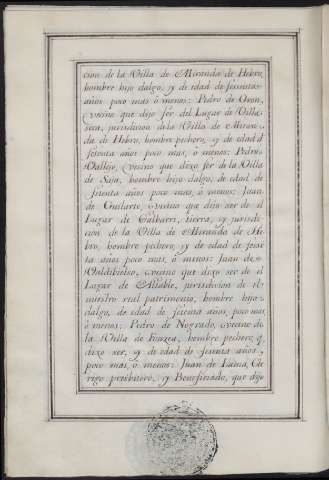 cion de la Villa de Miranda de Hebro,
hombre hijo dalgo, y de edad de sesenta
años poco mas ò menos: Pedro de Oron,
vecino que dijo ser del Lugar de Villa-
seca, jurisdicion de la Villa de Miran-
da de Hebro, hombre pechero, y de edad de
sesenta años poco mas, ò menos: Pedro
Vallejo, vecino que dixo ser de la Villa
de Saja, hombre hijo dalgo, de edad de
setenta años poco mas, ò menos: Juan
de Guilarte, vecino que dijo ser de el
Lugar de Galbarri, tierra, y jurisdic-
cion de la Villa de Miranda de He-
bro, hombre pechero, y de edad de sesen-
ta años poco mas, ò menos: Juan de
Valdibielso, vecino que dixo ser de el
Lugar de jurisdicion de el
nuestro real patrimonio, hombre hijo-
dalgo, de edad de setenta años, poco mas,
ò menos: Pedro de Nogrado, vecino de
la Villa de Fonzea, hombre pechero, q.
dixo ser, y de edad de sesenta años,
poco mas, ò menos: Juan de Cle-
rigo presbitero, y Beneficiado, que dijo